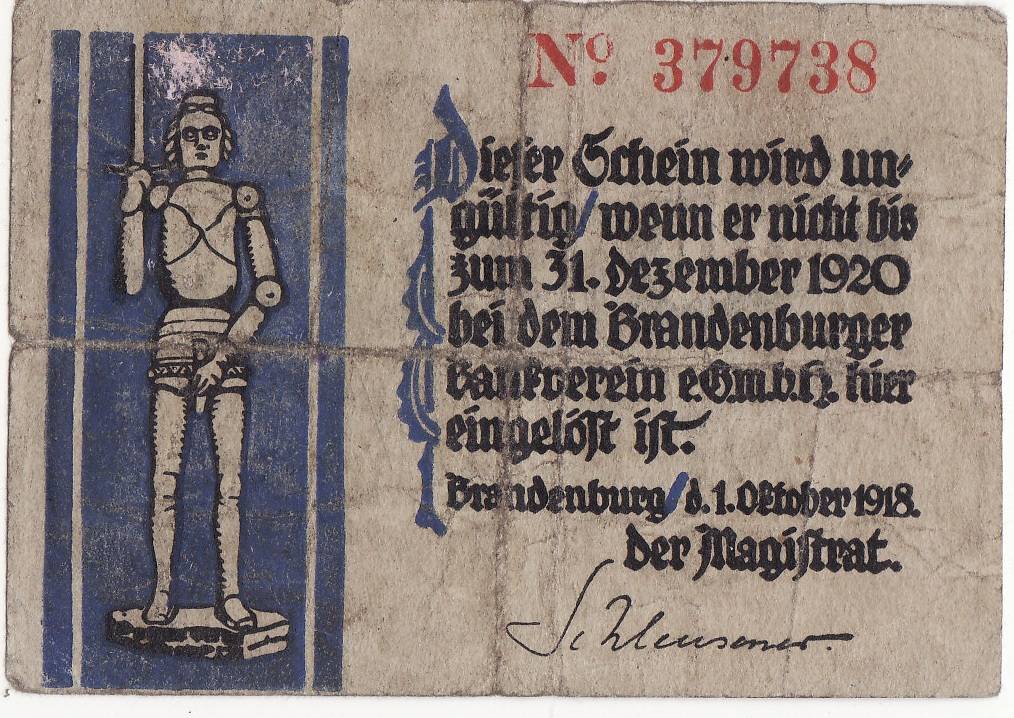 No 379738
Dieser Schein wird un-
gültig/ wenn er nicht bis
zum 31. Dezember 1920
bei dem Brandenburger
Bankverein e.G.m.b.H. hier
eingelöst ist.
Brandenburg/ d. 1. Oktober 1918.
Der Magistrat.
Schleusener.